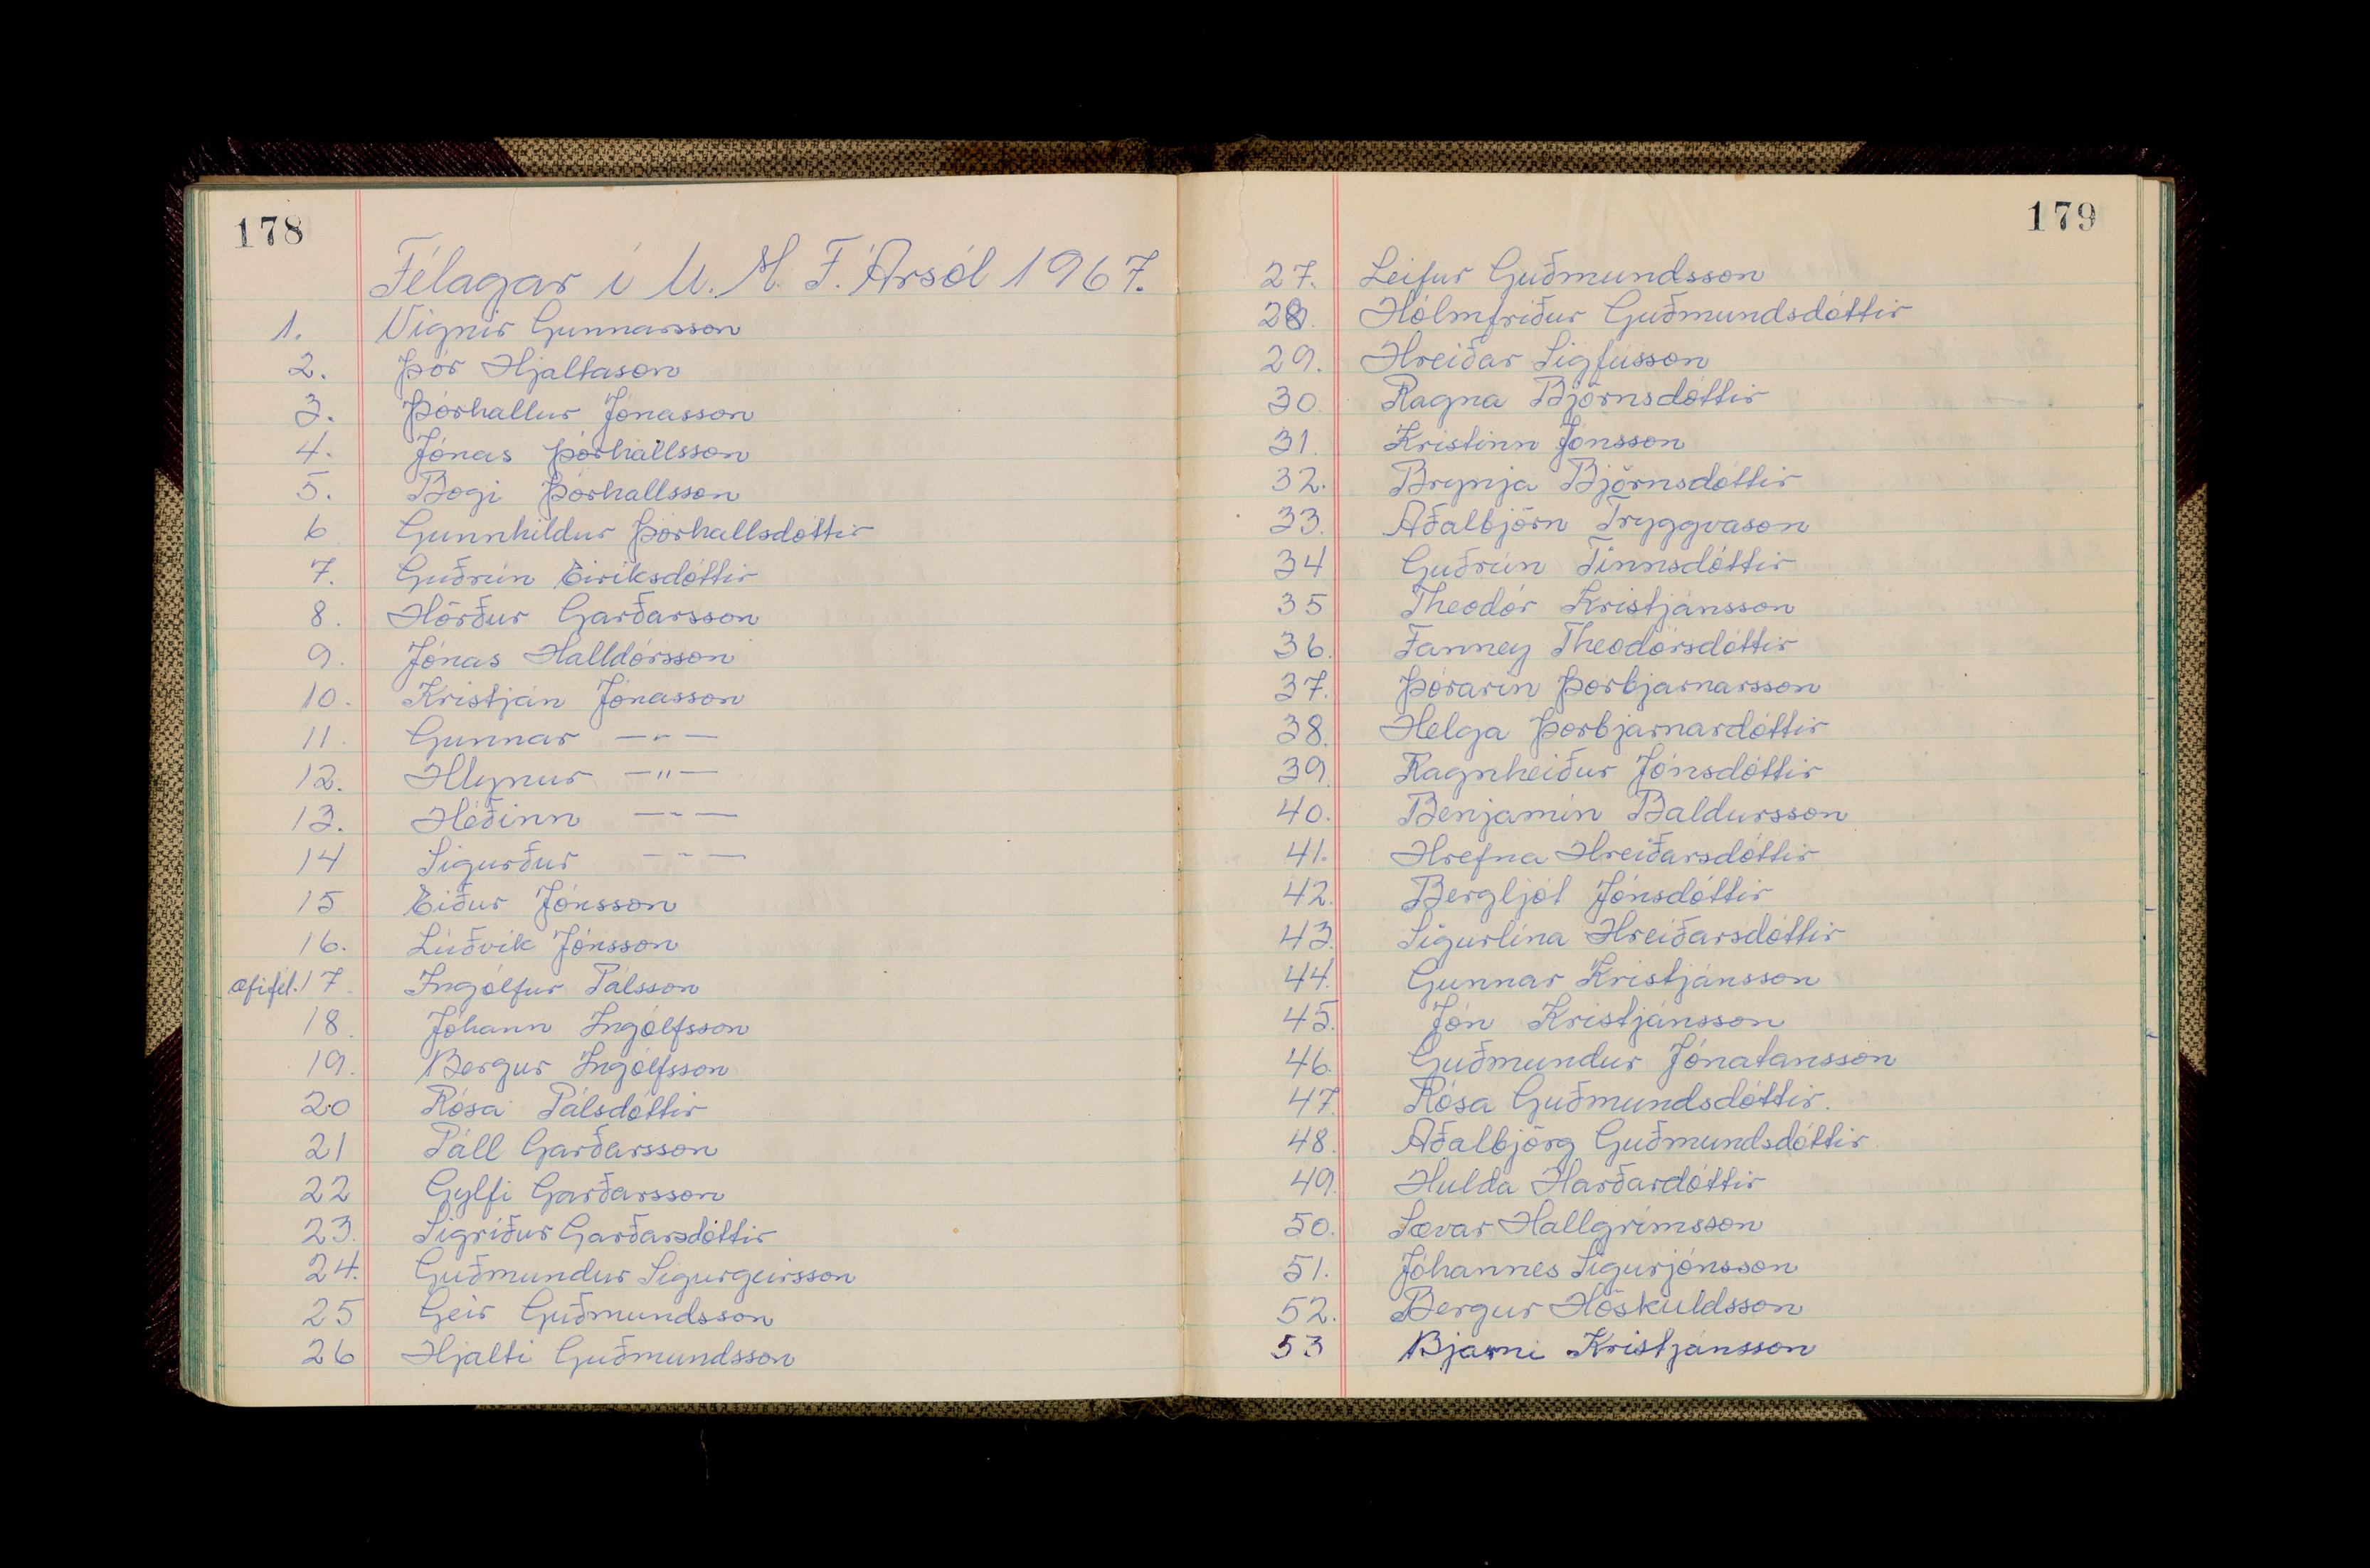 178
Félagar í U. M. F. Ársól 1967.
1. Vignir Gunnarsson
2. Þór Hjaltason
3. Þórhallur Jónasson
4. Jónas Þórhallsson
5. Bogi Þórhallsson
6 Gunnhildur Þórhallsdóttir
7. Guðrún Eiríksdóttir
8. Hörður Garðarsson
9. Jónas Halldórsson
10. Kristján Jónasson
11. Gunnar —"—
12. Hlynur —"—
13. Héðinn —"—
14 Sigurður —"—
15 Eiður Jónsson
16. Lúðvík Jónsson
æfifél. 17. Ingólfur Pálsson
18. Jóhann Ingólfsson
19. Bergur Ingólfsson
20 Rósa Pálsdóttir
21 Páll Garðarsson
22 Gylfi Garðarsson
23. Sigríður Garðarsdóttir
24. Guðmundur Sigurgeirsson
25 Geir Guðmundsson
26 Hjalti Guðmundsson
179
27. Leifur Guðmundsson
28. Hólmfríður Guðmundsdóttir
29. Hreiðar Sigfússon
30. Ragna Björnsdóttir
31. Kristinn Jónsson
32. Brynja Björnsdóttir
33. Aðalbjörn Tryggvason
34 Guðrún Finnsdóttir
35 Theodór Kristjánsson
36. Fanney Theodórsdóttir
37. Þórarin Þorbjarnarsson
38. Helga Þorbjarnardóttir
39. Ragnheiður Jónsdóttir
40. Benjamín Baldursson
41. Hrefna Hreiðarsdóttir
42. Bergljót Jónsdóttir
43. Sigurlína Hreiðarsdóttir
44. Gunnar Kristjánsson
45. Jón Kristjánsson
46. Guðmundur Jónatansson
47. Rósa Guðmundsdóttir.
48. Aðalbjörg Guðmundsdóttir
49. Hulda Harðardóttir
50. Sævar Hallgrímsson
51. Jóhannes Sigurjónsson
52. Bergur Höskuldsson
53 Bjarni Kristjánsson